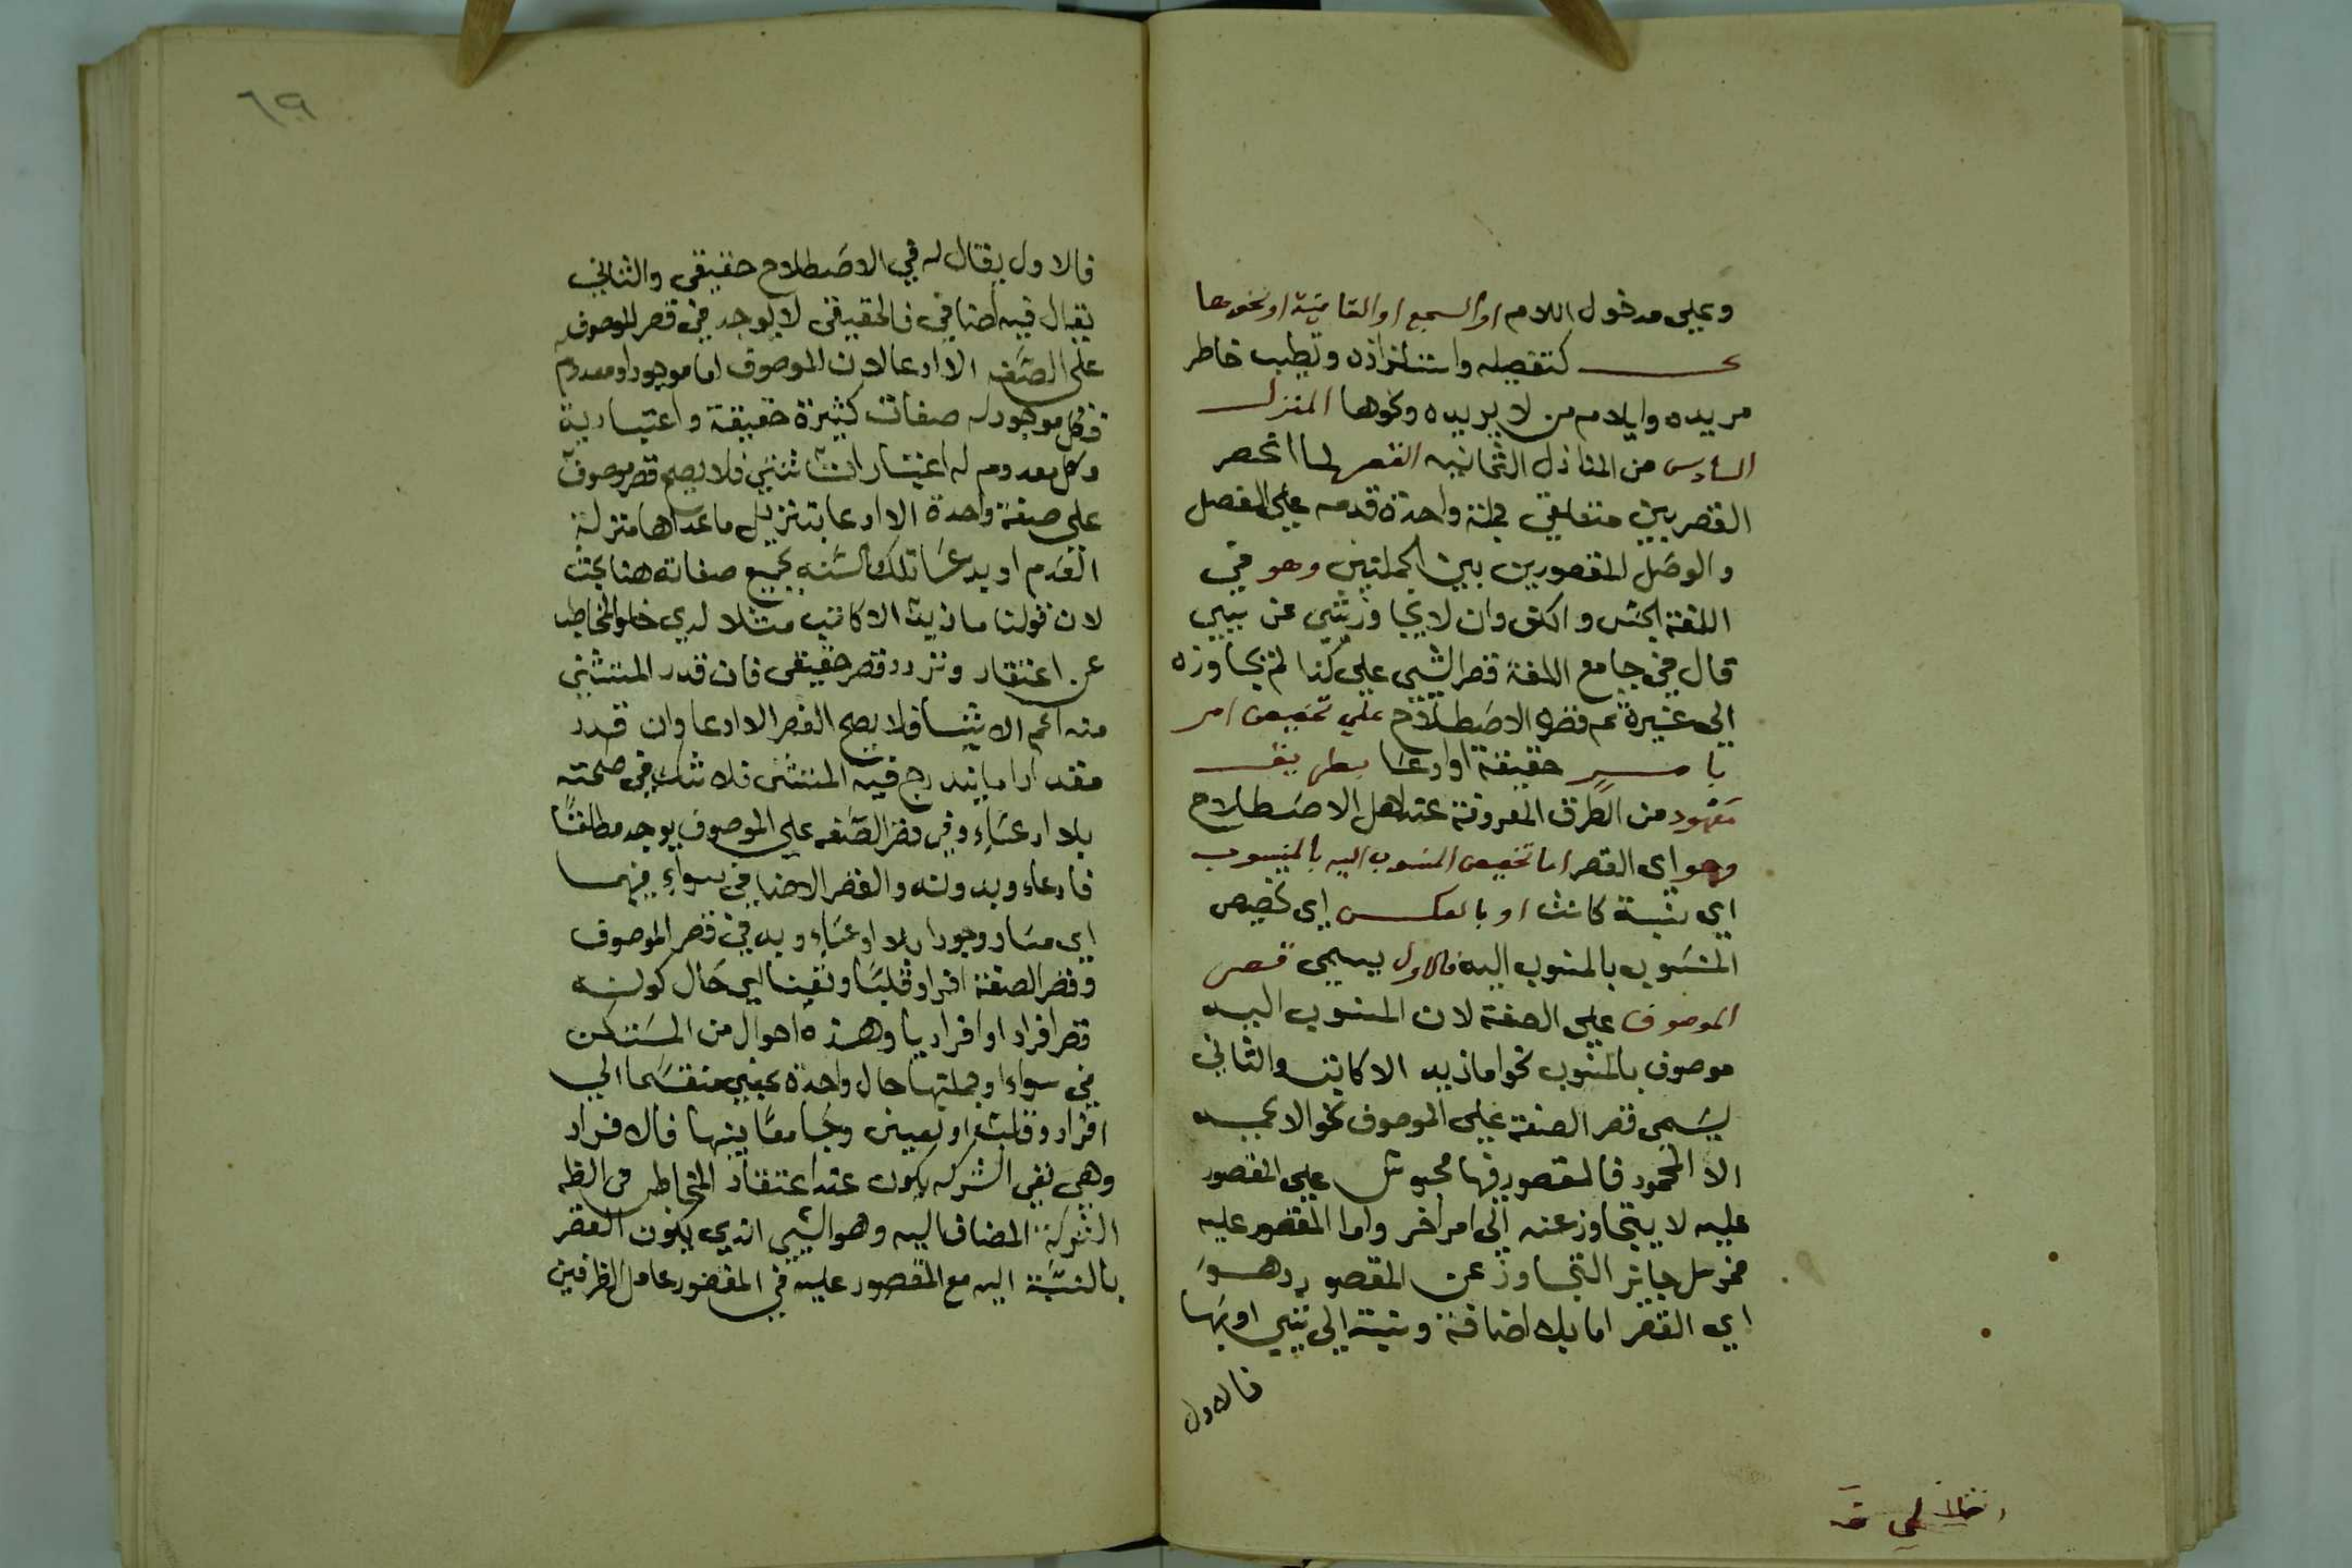 وعلى مدخول اللام او السجع او القافية او نحوها
كتفصيله واستلذاذه وتطيب خاطر
مريده وايلام من لا يريده ونحوها المنزل
السادس من المنازل الثمانيه القصر لما انحصر
القصر بين متعلقي جملة واحدة قدمه على الفصل
والوصل المقصورين بين الجملتين وهو في
اللغة الحبس والكف وان لا يجاوز شي عن شي
قال في جامع اللغة قصر الشي على كذا لم يجاوزه
الى غيره ثم قصر الاصطلاح على تخصيص امر
بامر حقيقة او ادعا بطريق
معهود من الطرق المعروفة عند اهل الاصطلاح
وهو اى القصر اما تخصيص المنسوب اليه بالمنسوب
اي نسبة كانت او بالعكس اى تخصيص
المنسوب بالمنسوب اليه فالاول يسمى قصر
الموصوف على الصفة لان المنسوب اليه
موصوف بالمنسوب نحو ما زيد الا كاتب والثاني
يسمى قصر الصفة على الموصوف نحو لا
الا المحمود فالمقصور فيها محبوس على المقصور
عليه لا يتجاوز عنه الى امر اخر واما المقصور عليه
جايز التجاوز عن المقصور وهو
اي القصر اما بلا اضافة ونسبة الى شي او بها
فالاول
٦٩
فالاول يقال له في الاصطلاح حقيقي والثاني
يقال فيه اضافي فالحقيقي لا يوجد في قصر الموصوف
على الصفه الا ادعا لان الموصوف اما موجود او معدوم
فكل موجود له صفات كثيرة حقيقة واعتبارية
وكل معدوم له اعتبارات شتي فلا يصح قصر موصوف
على صفة واحدة الا ادعا بتنزيل ما عداها منزلة
العدم او يدعي تلك لجميع صفاته هنا بحث
لان قولنا ما زيد الا كاتب مثلا لدي خلو المخاطب
عن اعتقاد وتردد قصر حقيقى فان قدر المستثني
منه اعم الاشيا فلا يصح القصر الا ادعا وان قدر
مقدارا ما يندرج فيه المستثنى فلا شك في صحته
بلا ادعاء وفي قصر الصفه على الموصوف يوجد مطلقا
فادعاء وبدونه والقصر الاضافي سواء فيهما
اي مساو وجودا بلا ادعاء وبه في قصر الموصوف
وقصر الصفة افرادا وقلبا وتعينا اي حال كونه
قصر افراد او وهذه احوال من المستكن
في سواء او جملتها حال واحدة بمعني منقسما الي
افراد وقلب او تعيين وجامعا بينها فالافراد
وهي نفي الشركه يكون عند اعتقاد المخاطب فى
الشركة المضاف اليه وهو الشي الذي يكون القصر
بالنسبة اليه مع المقصور عليه في المقصور عامل الظرفين